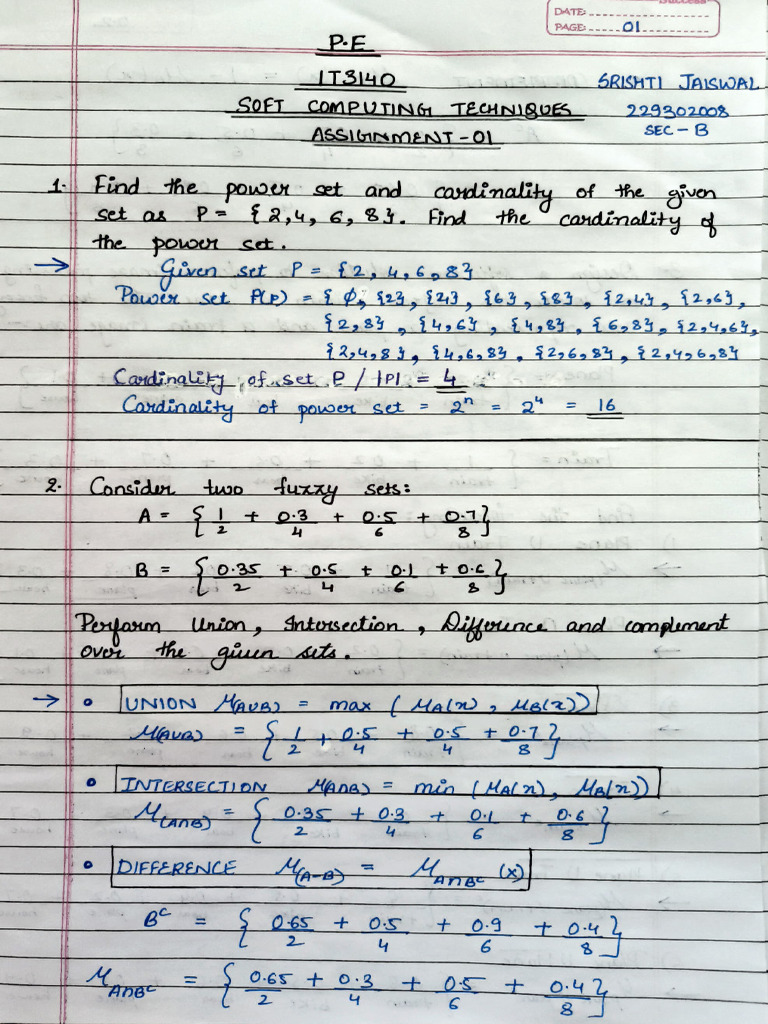 Success
DATE:
PAGE: 01
P.E
IT3140
SRISHTI JAISWAL
SOFT COMPUTING TECHNIQUES
229302008
ASSIGNMENT-01
SEC-B
1. Find the power set and cardinality of the given
set as P = {2,4, 6, 8}. Find the cardinality of
the power set.
→ Given set P = {2, 4, 6, 8}
Power set P(P) = { ϕ, {2}, {4}, {6}, {8}, {2,4}, {2,6},
{2,8}, {4,6}, {4,8}, {6,8}, {2,4,6},
{2,4,8}, {4,6,8}, {2,6,8}, {2,4,6,8}
Cardinality of set P / |P| = 4
Cardinality of power set = 2ⁿ = 2⁴ = 16
2. Consider two fuzzy sets:
A = {1/2 + 0.3/4 + 0.5/6 + 0.7/8}
B = {0.35/2 + 0.5/4 + 0.1/6 + 0.6/8}
Perform Union, Intersection, Difference and complement
over the given sets.
→ • UNION μ(A∪B) = max (μA(x), μB(x))
μ(A∪B) = {1/2 + 0.5/4 + 0.5/4 + 0.7/8}
• INTERSECTION μ(A∩B) = min (μA(x), μB(x))
μ(A∩B) = {0.35/2 + 0.3/4 + 0.1/6 + 0.6/8}
• DIFFERENCE μ(A-B) = μA∩Bᶜ (x)
Bᶜ = {0.65/2 + 0.5/4 + 0.9/6 + 0.4/8}
μA∩Bᶜ = {0.65/2 + 0.3/4 + 0.5/6 + 0.4/8}